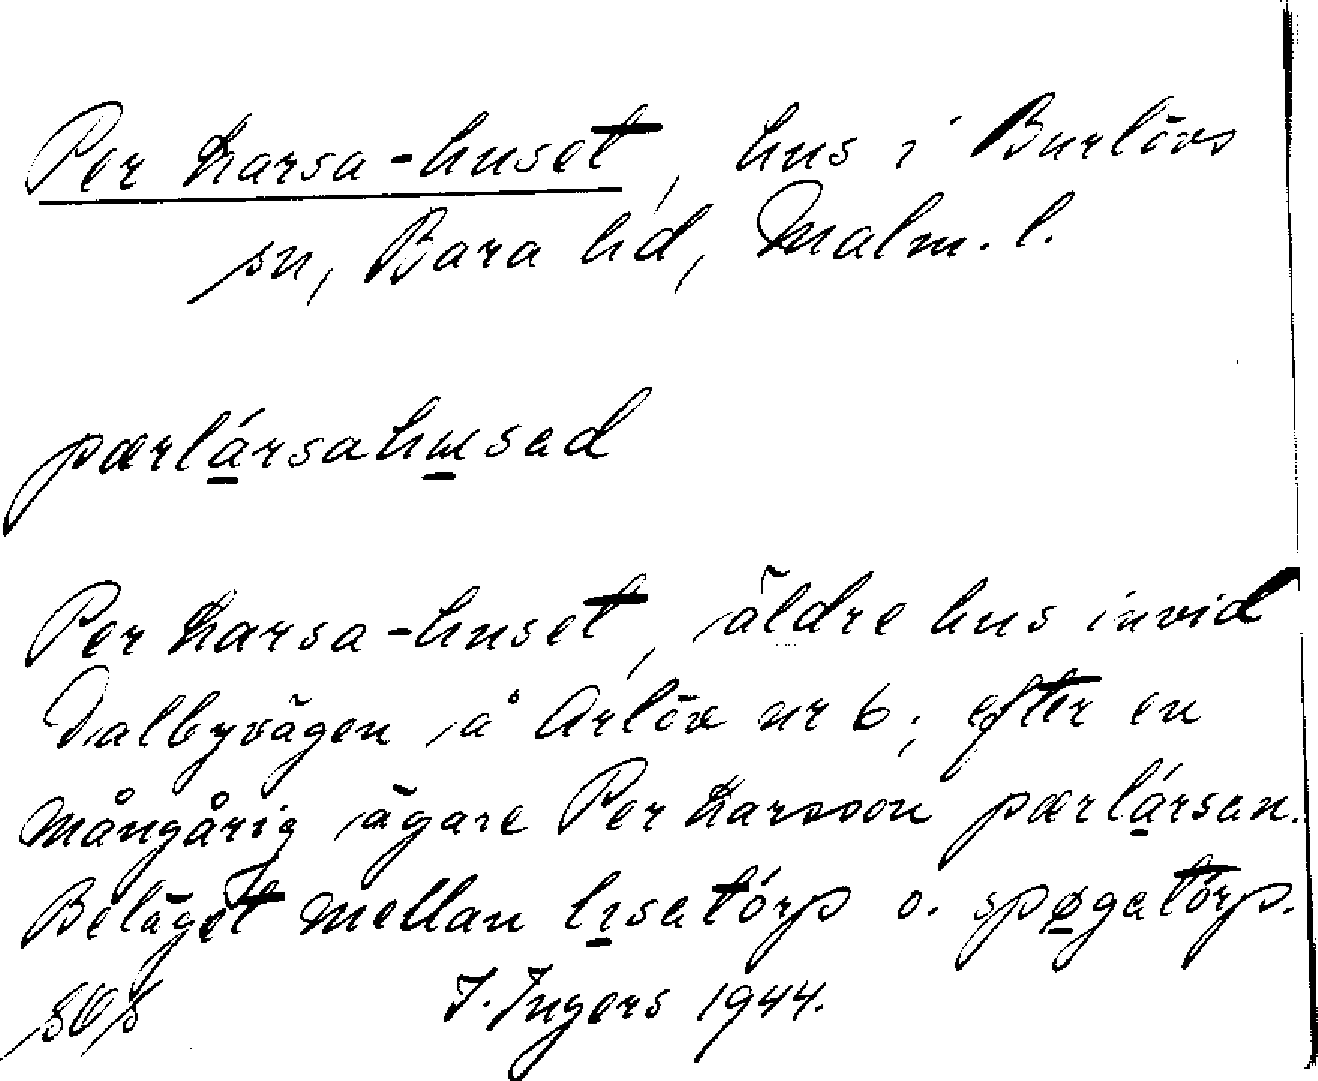 Per Larsa-huset, hus i Burlövs
sn, Bara hd, Malm. l.
pærlársahusad
Per Larsa-huset, äldre hus invid
Dalbyvägen å Arlöv nr 6; efter en
mångårig ägare Per Larsson pærlársan.
Beläget mellan lisatórp o. spøgatórp.
I. Ingers 1944.